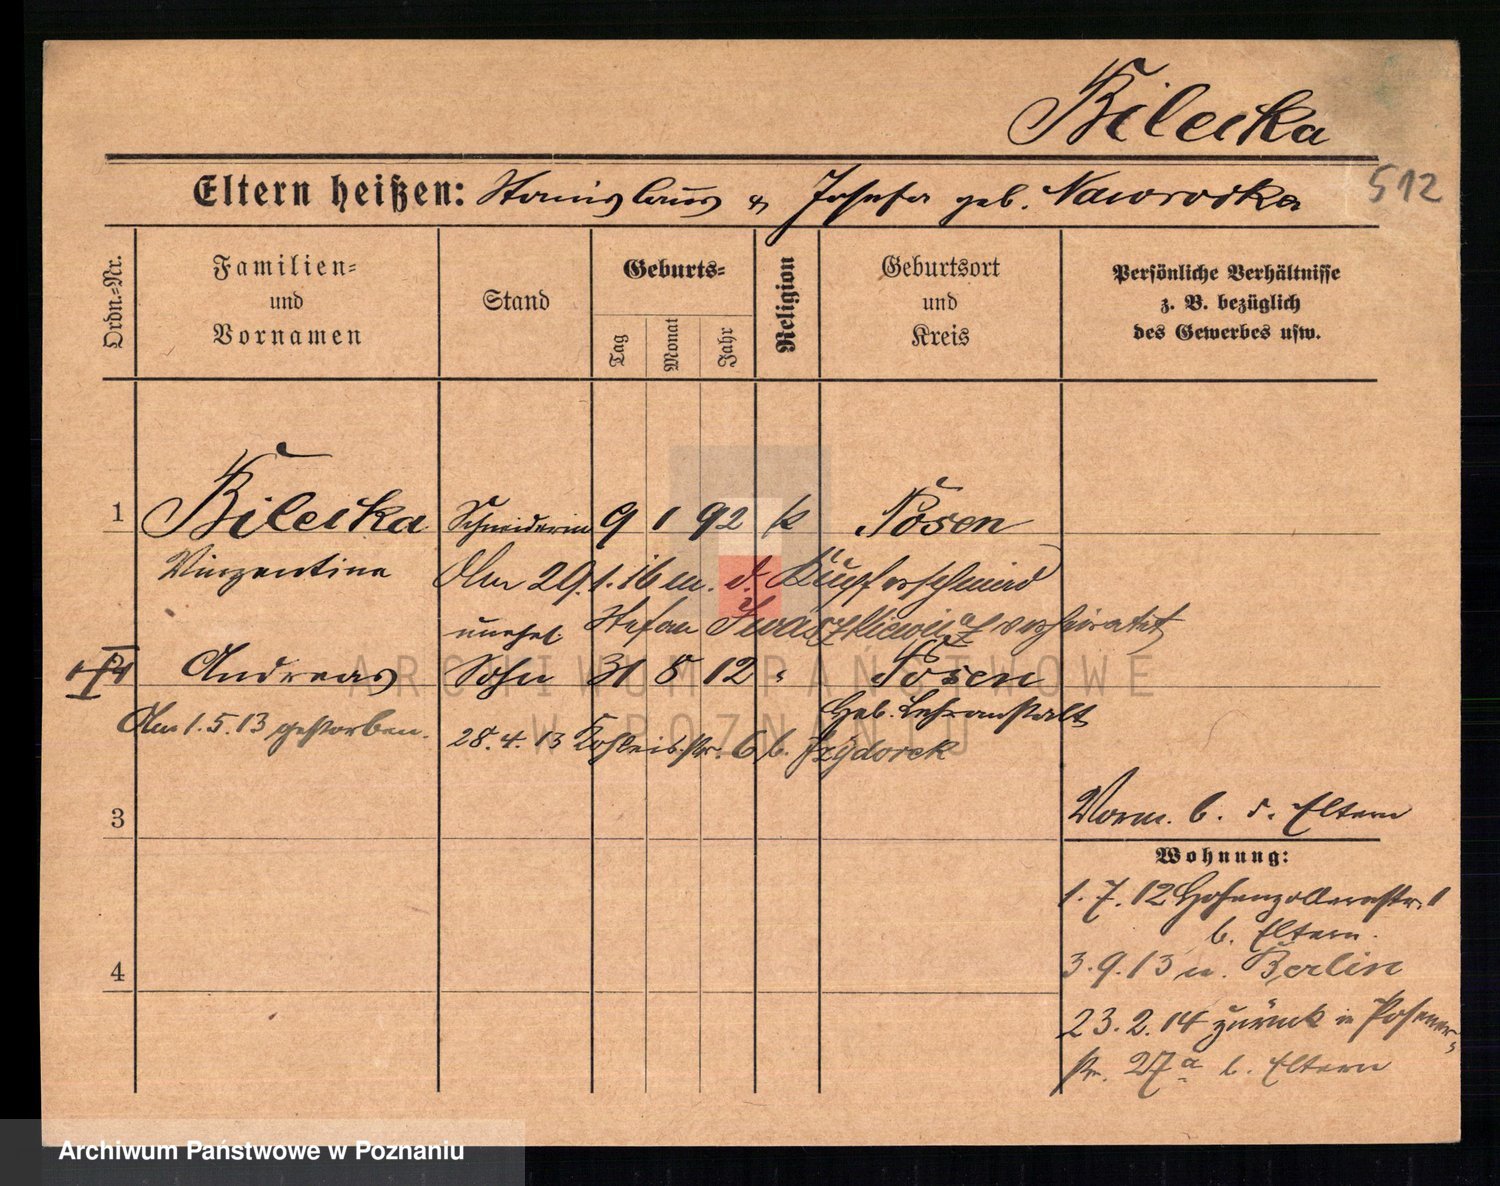 Bilecka
Eltern heißen: Stanislaus & Josefa geb. Nawrocka
512
Ordn.-Nr.
Familien-
und
Vornamen
Stand
Geburts-
Tag
Monat
Jahr
Religion
Geburtsort
und
Kreis
Persönliche Verhältnisse
z. B. bezüglich
des Gewerbes usw.
1 Bilecka Schneiderin 9 1 92 k Posen
Vinzentina Am 29.1.16 m. d. Kupferschmied
Stefan verheiratet
unehel.
Andreas Sohn 31 5 12 " Posen
Heb. Lehranstalt
Am 1.5.13 gestorben.
28.4.13 6 b. Frydorek
3
Vorm. b. d. Eltern
Wohnung:
1.7.12 Hohenzollernstr. 1
b. Eltern.
3.9.13 n. Berlin
4
23.2.14 zurück in Posener-
str. 27a b. Eltern
ARCHIWUM PAŃSTWOWE
W POZNANIU
Archiwum Państwowe w Poznaniu